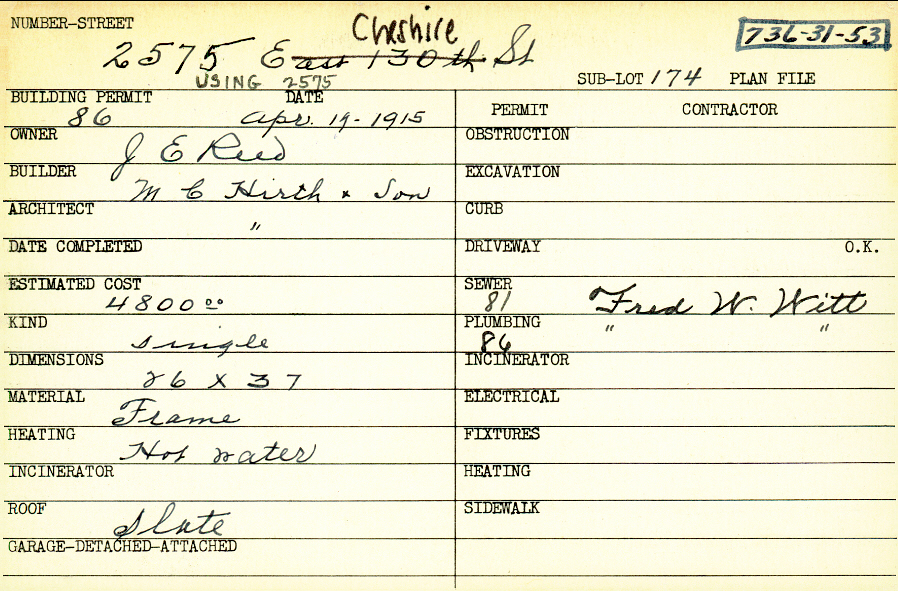 NUMBER-STREET
Cheshire
736-31-53
2575 East 130th St
USING 2575
SUB-LOT 174 PLAN FILE
BUILDING PERMIT DATE
86 Apr. 19-1915
PERMIT CONTRACTOR
OWNER
J E Reed
OBSTRUCTION
BUILDER
M C Hirth & Son
EXCAVATION
ARCHITECT
"
CURB
DATE COMPLETED
DRIVEWAY O.K.
ESTIMATED COST
4800 00
SEWER
81 Fred W. Witt
KIND
single
PLUMBING
86 " "
DIMENSIONS
26 X 37
INCINERATOR
MATERIAL
Frame
ELECTRICAL
HEATING
Hot water
FIXTURES
INCINERATOR
HEATING
ROOF
Slate
SIDEWALK
GARAGE-DETACHED-ATTACHED